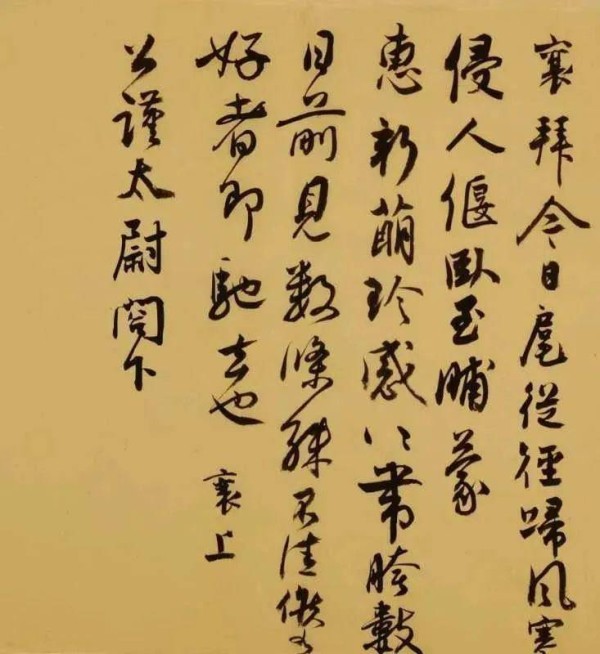 襄拜今日扈從徑歸風寒
侵人偃臥至晡蒙
惠新萌珍感〻帶胯數
日前見數條殊不佳候有
好者即馳去也 襄上
公謹太尉閤下